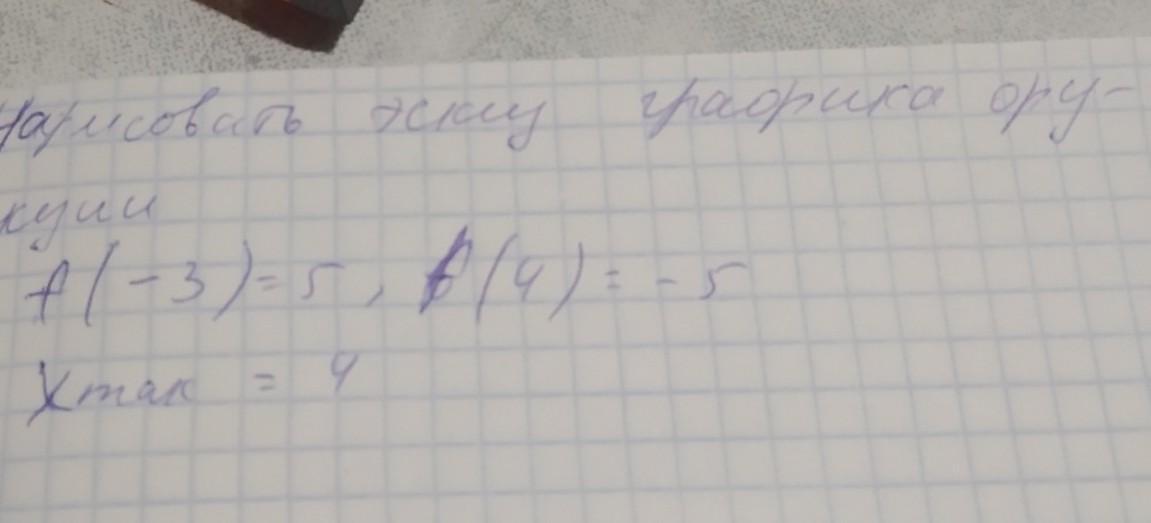 Нарисовать эскиз графика фу-
кции
f(-3)=5, f(4)=-5
Xmax = 4